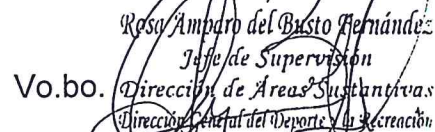 Rosa Amparo del Busto Fernández
Jefe de Supervisión
Vo.bo. Dirección de Areas Sustantivas
Dirección General del Deporte y la Recreación